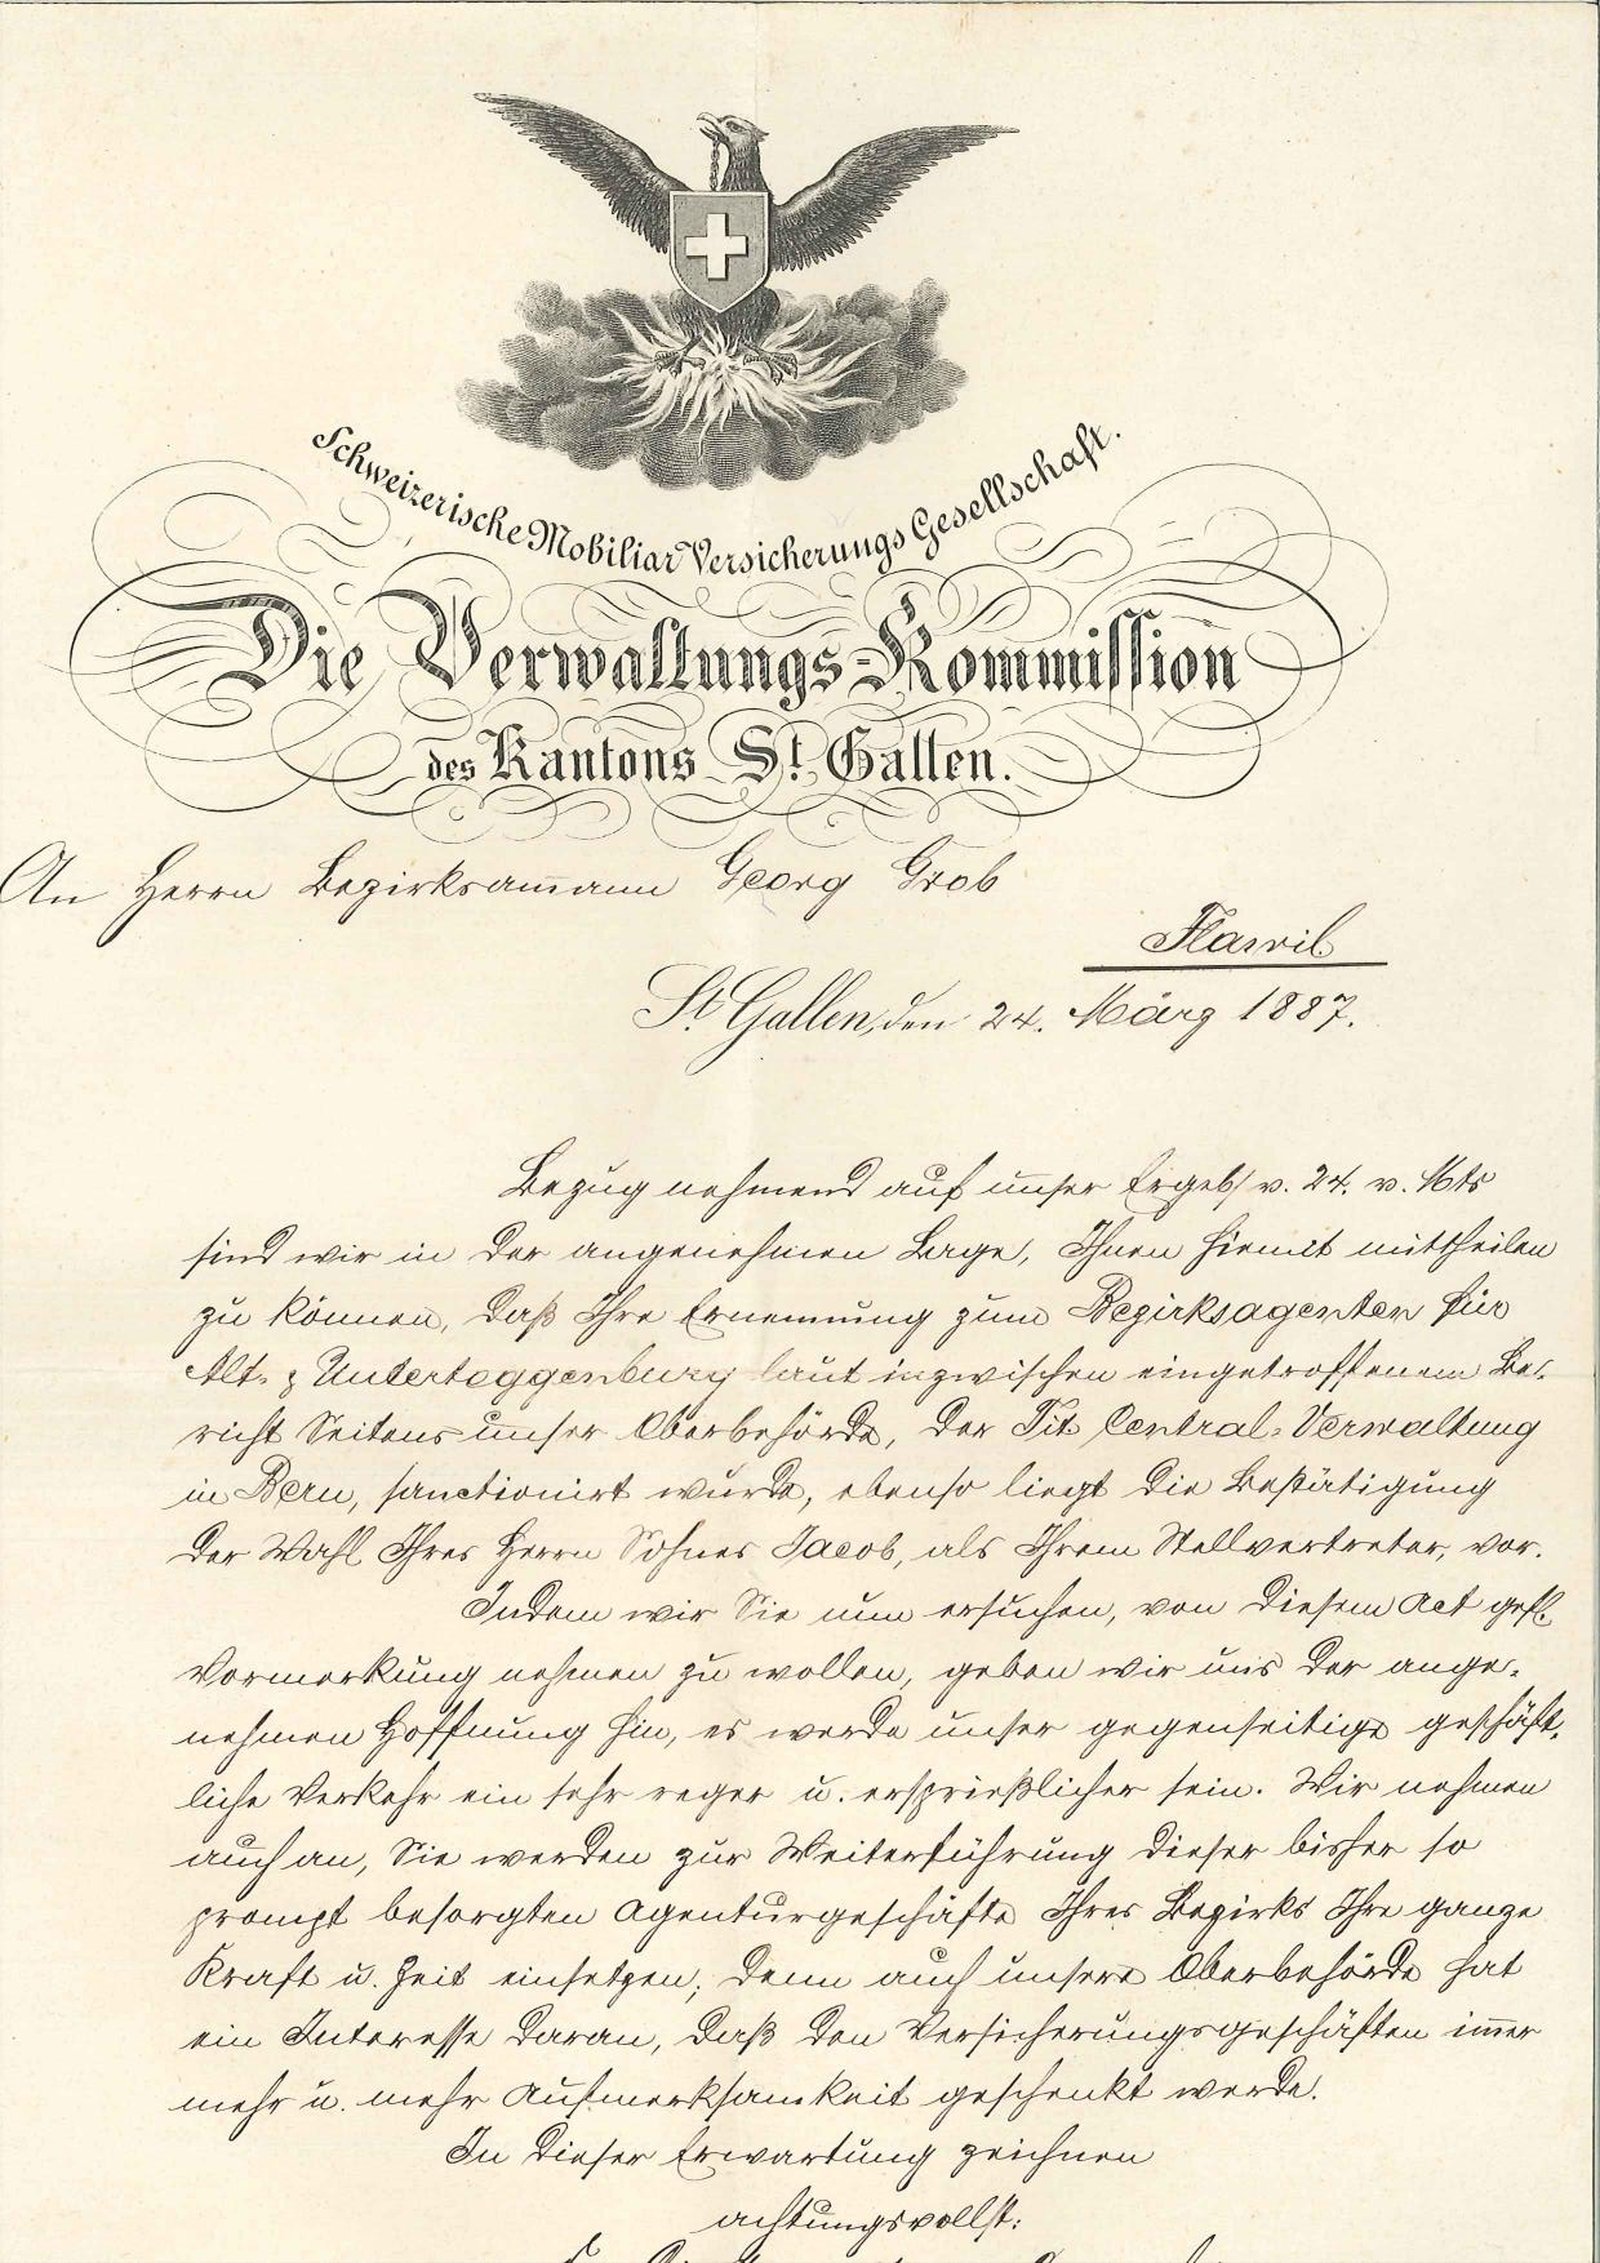 Schweizerische Mobiliar Versicherungs Gesellschaft.
Die Verwaltungs-Kommission
des Kantons St. Gallen.
An Herrn Bezirksammann Georg Grob
Flawil.
St. Gallen, den 24. März 1887.
Bezug nehmend auf unser Ergeb. v. 24. v. Mts
sind wir in der angenehmen Lage, Ihnen hiemit mittheilen
zu können, daß Ihre Ernennung zum Bezirksagenten für
Alt- & Untertoggenburg laut inzwischen eingetroffenem Be-
richt Seitens unser Oberbehörde, der Tit. Central-Verwaltung
in Bern, sanctionirt wurde, ebenso liegt die Bestätigung
der Wahl Ihres Herrn Sohnes Jacob, als Ihrem Stellvertreter, vor.
Indem wir Sie nun ersuchen, von diesem Act gefl.
Vormerkung nehmen zu wollen, geben wir uns der ange-
nehmen Hoffnung hin, es werde unser gegenseitige geschäft-
liche Verkehr ein sehr reger u. ersprießlicher sein. Wir nehmen
auch an, Sie werden zur Weiterführung dieser bisher so
prompt besorgten Agenturgeschäfte Ihres Bezirks Ihre ganze
Kraft u. Zeit einsetzen; denn auch unsere Oberbehörde hat
ein Interesse daran, daß den Versicherungsgeschäften immer
mehr u. mehr Aufmerksamkeit geschenkt werde.
In dieser Erwartung zeichnen
achtungsvollst: